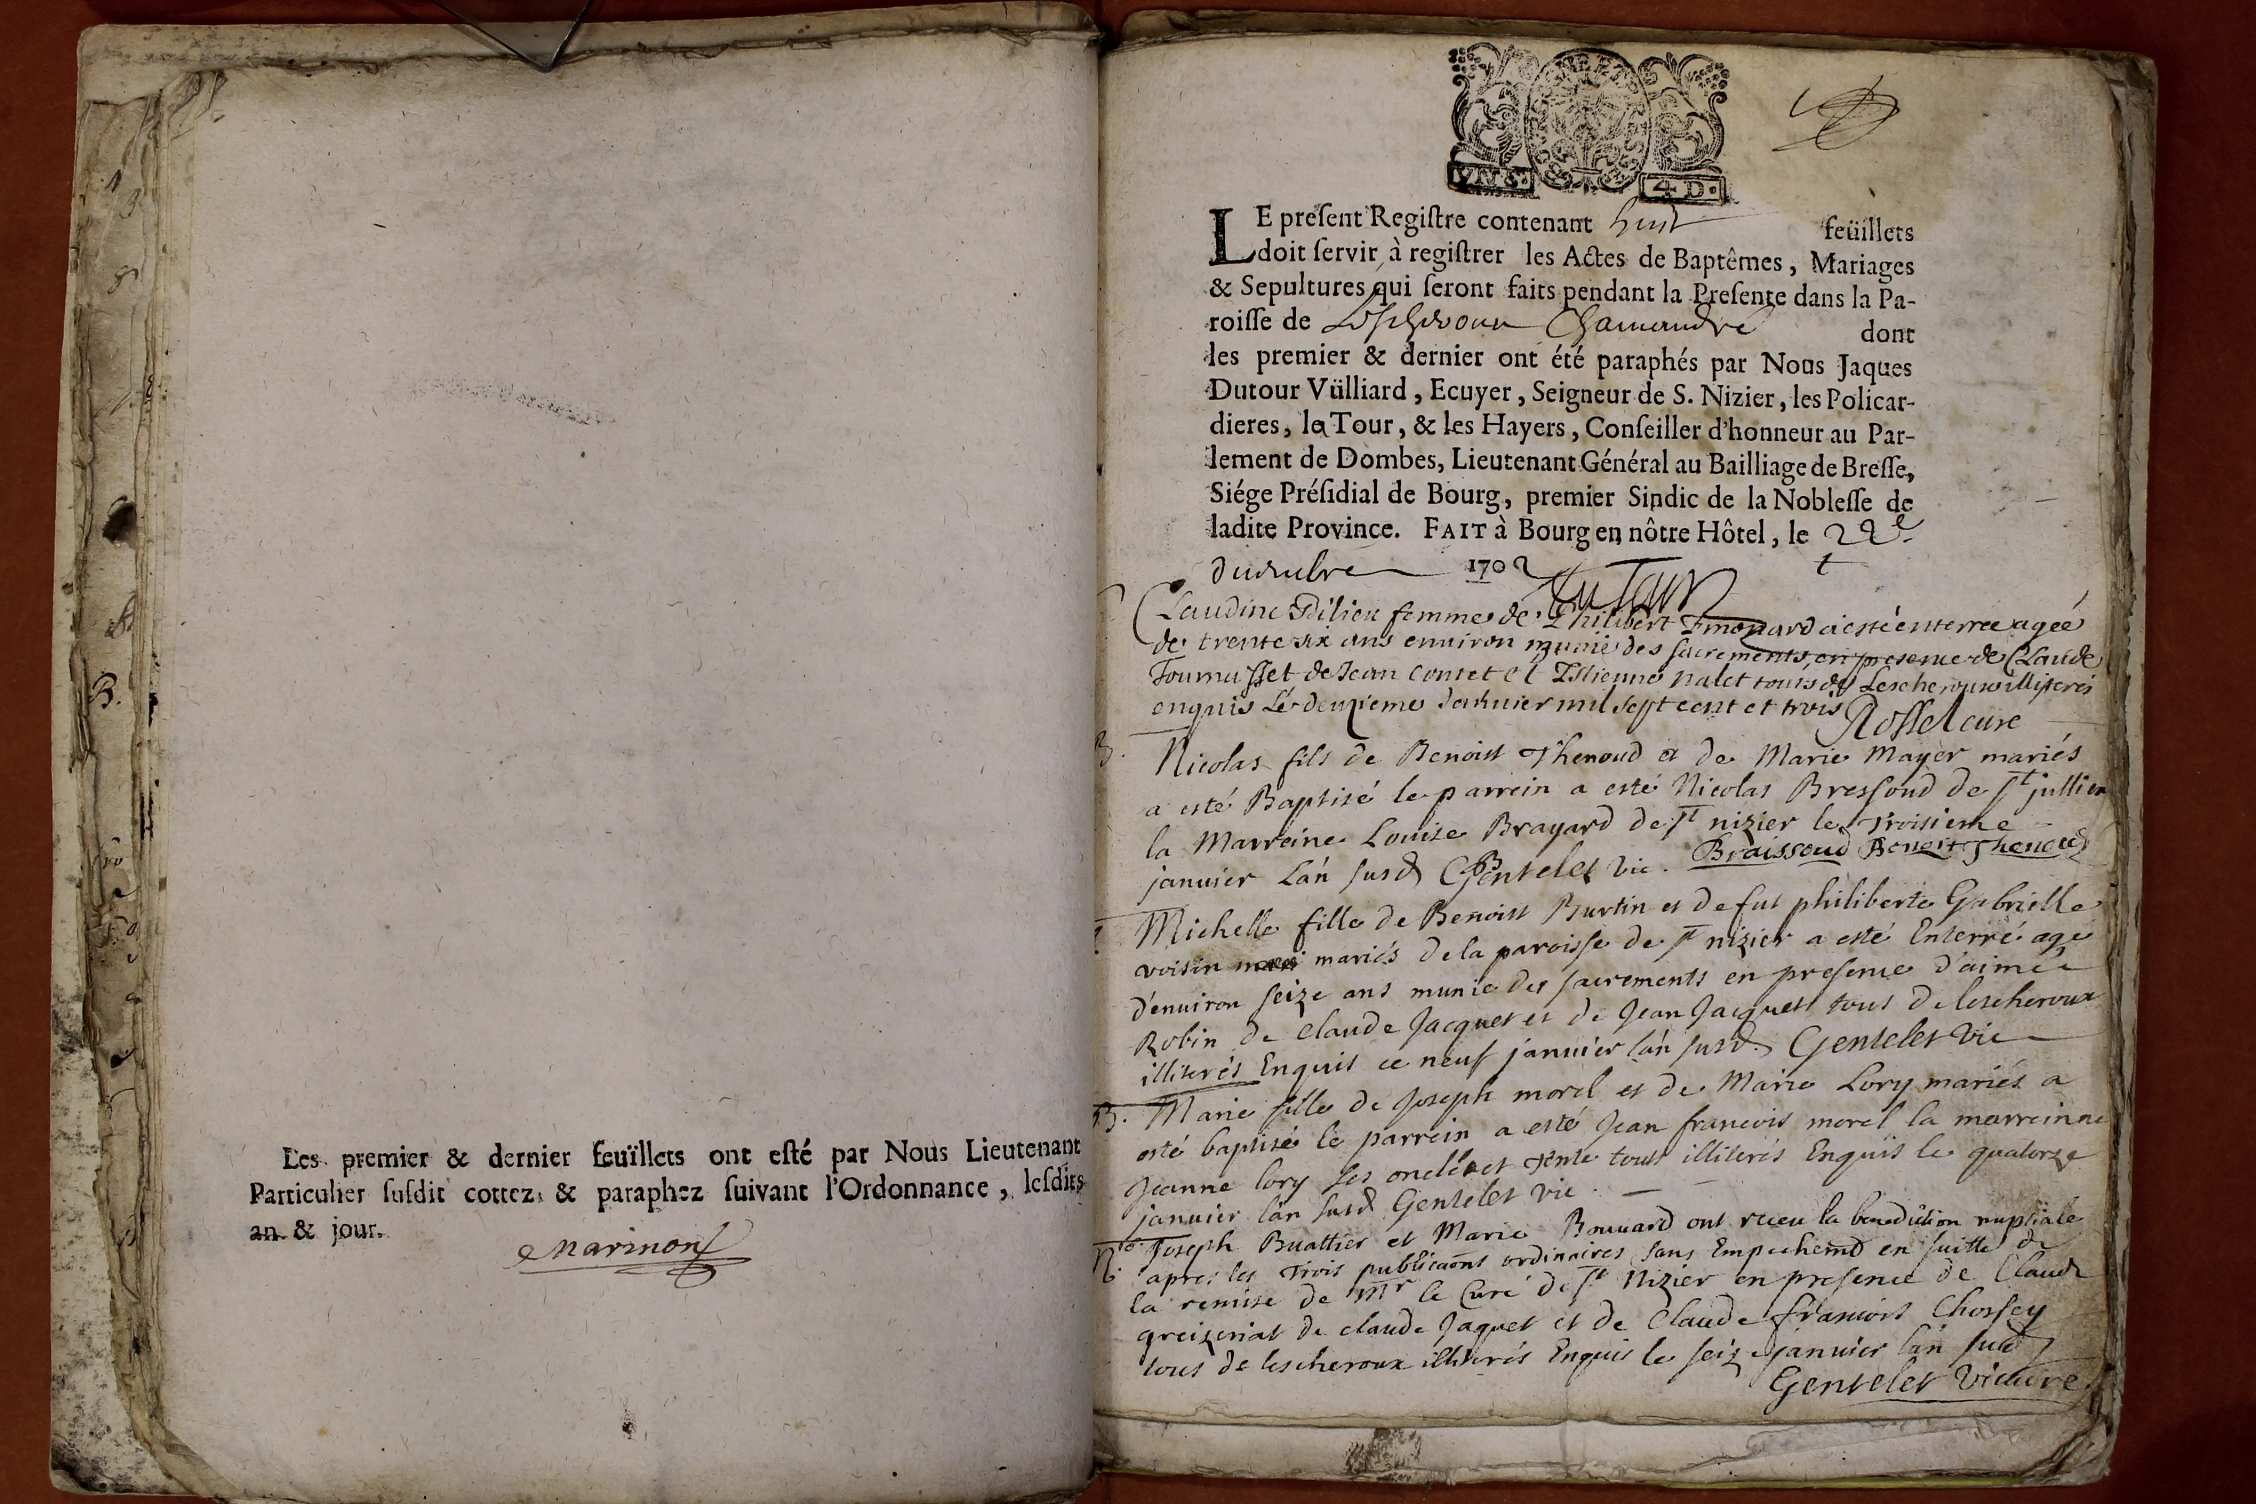 Les premier & dernier feuïllets ont eſté par Nous Lieutenant
Particulier ſuſdit cottez & paraphez ſuivant l'Ordonnance, leſdits
an & jour.
Marinon
VN S.
4 D.
LE preſent Regiſtre contenant huit feüillets
doit ſervir à regiſtrer les Actes de Baptêmes, Mariages
& Sepultures qui ſeront faits pendant la Preſente dans la Pa-
roiſſe de Lescheroux Chamandre dont
les premier & dernier ont été paraphés par Nous Jaques
Dutour Vülliard, Ecuyer, Seigneur de S. Nizier, les Policar-
dieres, la Tour, & les Hayers, Conſeiller d'honneur au Par-
lement de Dombes, Lieutenant Général au Bailliage de Breſſe,
Siége Préſidial de Bourg, premier Sindic de la Nobleſſe de
ladite Province. FAIT à Bourg en nôtre Hôtel, le 22e
decembre 1702 Dutour
Claudine femme de Philibert a esté enterree agée
de trente six ans enuiron munie des sacrements, en presence de Claude
Tournusset de Jean Contet et Estienne nalet touts de Lescheroux illiterés
enquis Le deuxieme Januier mil sept cent et trois Rosselet cure
B. Nicolas fils de Benoist Thenoud et de Marie Mayer mariés
a esté Baptisé le parrein a esté Nicolas Bressoud de st jullien
la Marreine Louise Brayard de st nizier le Troisieme
januier Lán susd Gentelet vic. Braissoud Benoit Thenoud
Michelle fille de Benoist Burtin et de fut philiberte Gabrielle
voisin mariés de la paroisse de st nizier a esté Enterré agé
d'enuiron seize ans munie des sacrements en presence d'aimé
Robin de Claude Jacquet et de Jean Jacquet tous de lescheroux
illiterés Enquis ce neuf januier lán susd. Gentelet vic
B. Marie fille de Joseph morel et de Marie Lory mariés a
esté baptisé le parrein a esté Jean francois morel la marreinne
Jeanne lory ses oncle et tente tous illiterés Enquis le quatorze
januier lán susd Gentelet vic.
Joseph Buattier et Marie Bouuard ont receu la benediction nuptiale
apres les Trois publicaons ordinaires sans Empechemd en suitte de
la remise de Mr le Curé de st Nizier en presence de Claude
greizeriat de claude Jaquet et de Claude francois Chossey
tous de lescheroux illiterés Enquis le seize januier lán susd
Gentelet Vicaire